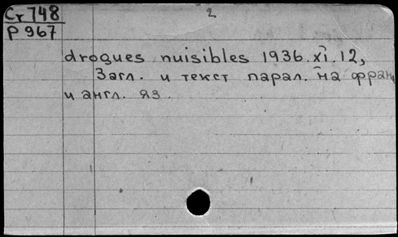 Cr 748
P 967
2
drogues nuisibles 1936.XI.12,
Загл. и текст парал. на фран.
и англ. яз.